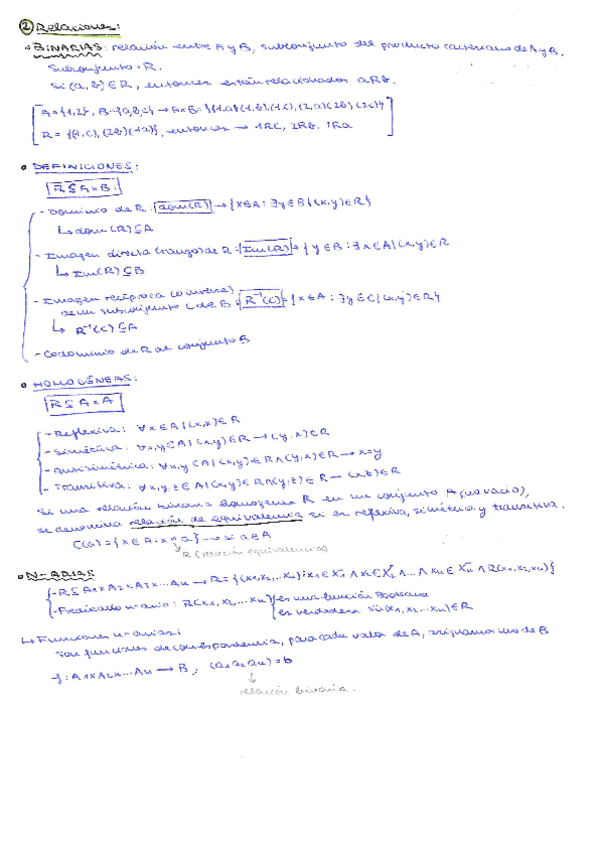 ② Relaciones:
• BINARIAS: relación entre A y B, subconjunto del producto cartesiano de A y B.
Subconjunto: R.
Si (a, b) ∈ R, entonces están relacionados aRb.
A = {1,2}, B = {a,b,c} → A×B = {(1,a)(1,b),(1,c),(2,a)(2b)(2c)}
R = {(1,c),(2b)(1a)}, entonces → 1Rc, 2Rb, 1Ra
• DEFINICIONES:
R ⊆ A×B.
- Dominio de R: dom(R) → {x∈A: ∃y∈B | (x,y)∈R}
↳ dom(R) ⊆ A
- Imagen directa (rango) de R: Im(R) → {y∈B: ∃x∈A | (x,y)∈R
↳ Im(R) ⊆ B
- Imagen recíproca (o inversa)
de un subconjunto C de B = R⁻¹(C) = {x∈A: ∃y∈C | (x,y)∈R}
↳ R⁻¹(C) ⊆ A
- Codominio de R al conjunto B
• HOMOGÉNEAS:
R ⊆ A×A
- Reflexiva: ∀x∈A | (x,x)∈R
- Simétrica: ∀x,y∈A | (x,y)∈R → (y,x)∈R
- Antisimétrica: ∀x,y∈A | (x,y)∈R ∧ (y,x)∈R → x=y
- Transitiva: ∀x,y,z∈A | (x,y)∈R ∧ (y,z)∈R → (x,z)∈R
Si una relación binaria homogénea R en un conjunto A (no vacío),
se denomina relación de equivalencia si es reflexiva, simétrica y transitiva.
C(a) = {x∈A: x R a} → si a∈A
R (relación equivalencia)
• N-ARIAS
- R ⊆ A1×A2×A3×...An → R = {(x1,x2,...xn): x1∈X1 ∧ x2∈X2 ∧ ... ∧ xn∈Xn ∧ R(x1,x2,...xn)}
- Predicado n-ario: R(x1,x2,...xn) es una función Booleana
es verdadera si (x1,x2,...xn)∈R
↳ Funciones n-arias:
Son funciones de correspondencia, para cada valor de A, asignamos uno de B
f: A1×A2×...An → B, (a1 a2 an) = b
↓
relación binaria.